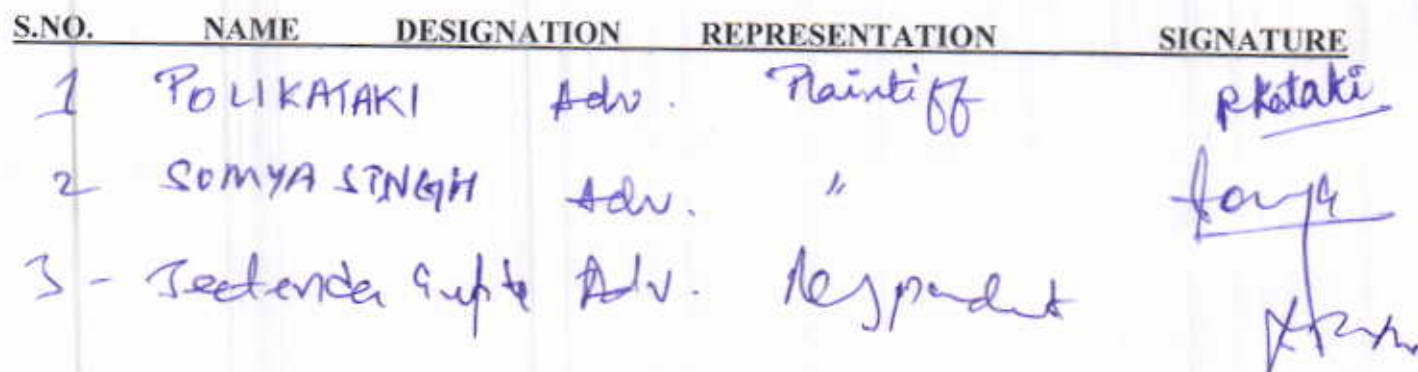 S.NO. NAME DESIGNATION REPRESENTATION SIGNATURE
1 POLI KATAKI Adv. Plaintiff PKataki
2 SOMYA SINGH Adv. " Somya
3 - Jeetender Gupta Adv. Respondent